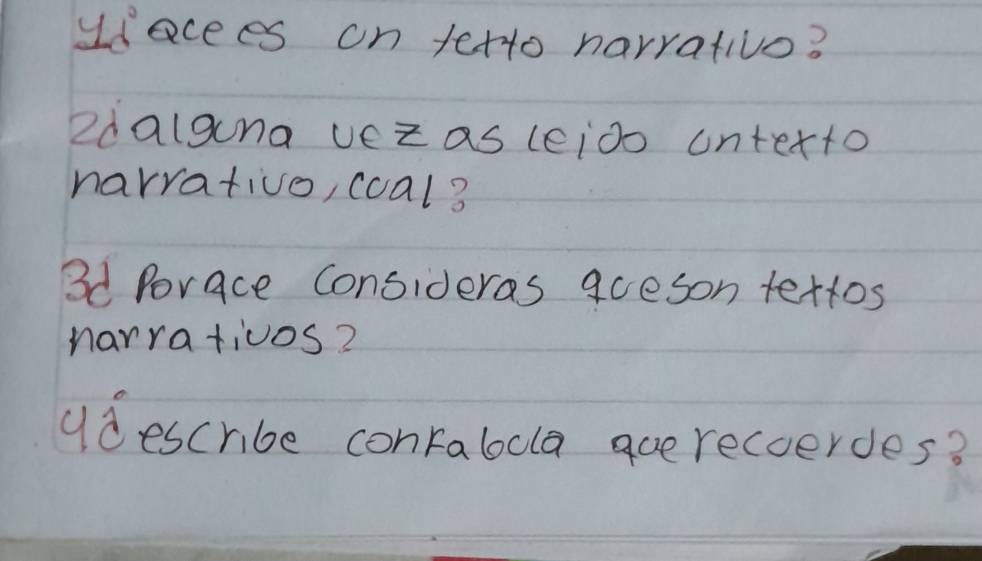 1¿ Qce es un texto narrativo?
2¿ alguna vez as leido untexto
narrativo, cual?
3¿ Porqce consideras queson textos
narrativos?
4¿ escribe conFabula que recuerdes?